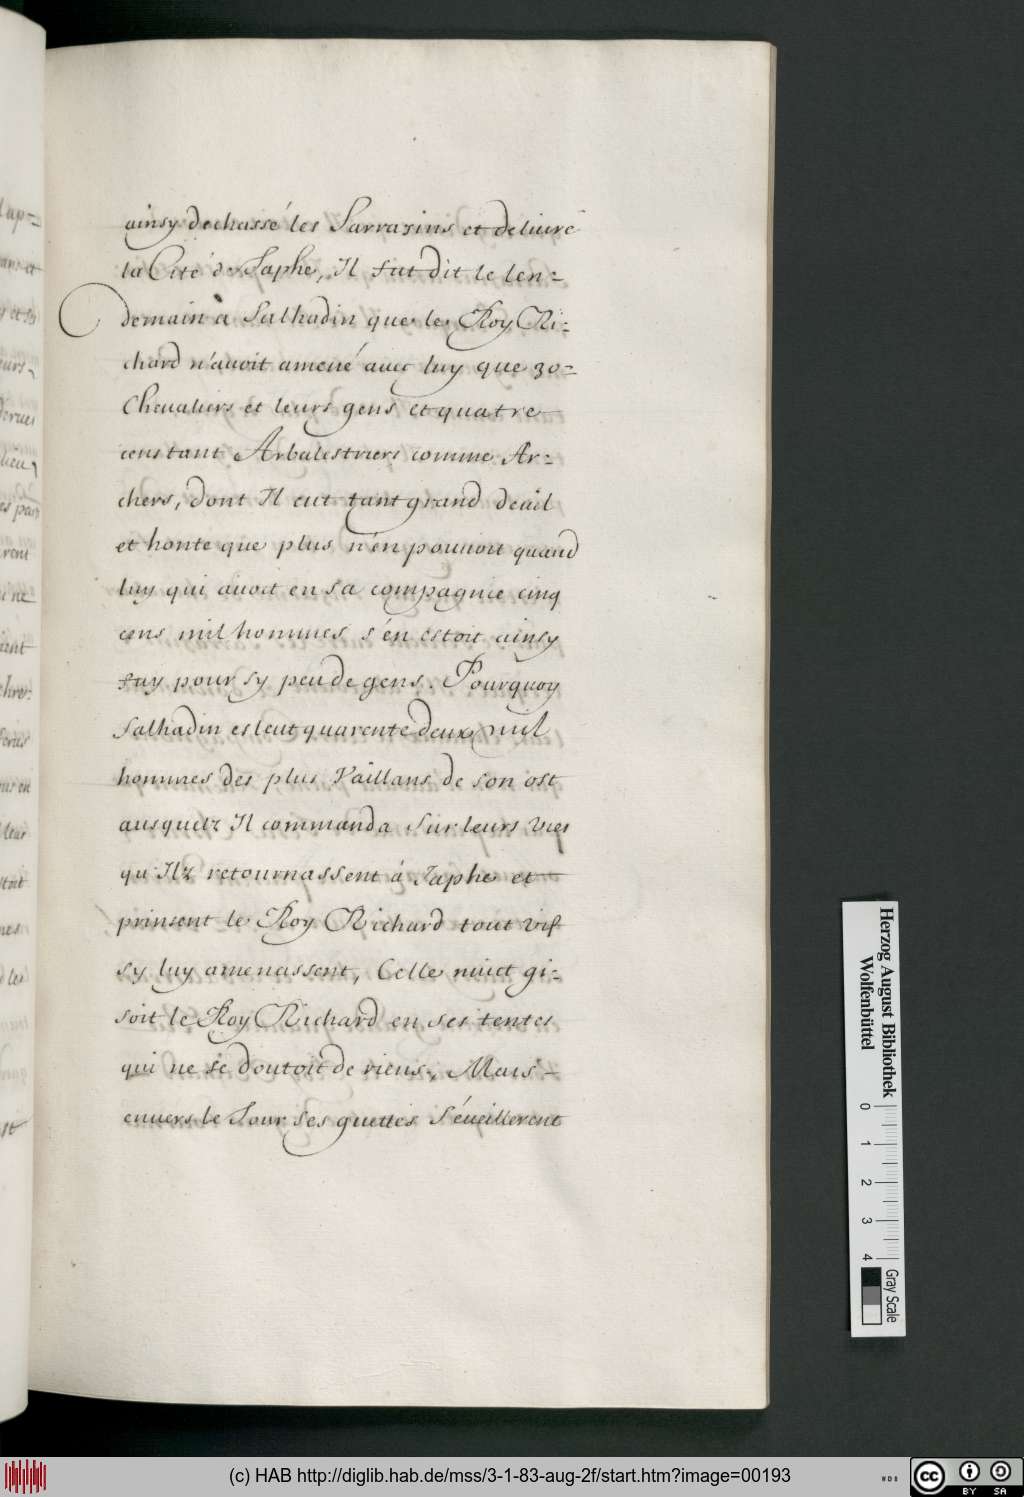 ainsy dechassé les Sarrasins et deliuré
la Cité de Japhe, Il fut dit le len-
demain a Salhadin que le Roy Ri-
chard n'auoit amené auec luy que 30-
Chevaliers et leurs gens et quatre
cens tant Arbalestriers comme Ar-
chers, dont Il eut tant grand deuil
et honte que plus n'en pouuoit quand
luy qui avoit en sa compagnie cinq
cens mil hommes s'en estoit ainsy
fuy pour sy peu de gens. Pourquoy
Salhadin esleut quarente deux mil
hommes des plus Vaillans de son ost
ausquelz Il commanda sur leurs vies
qu'Ilz retournassent á Japhe et
prinsent le Roy Richard tout vif
sy luy amenassent, Celle nuict gi-
soit le Roy Richard en ses tentes
qui ne se doutoit de riens, Mais-
enuers le Jour ses guettes s'éueillerent
Herzog August Bibliothek
Wolfenbüttel
0 1 2 3 4
Gray Scale
(c) HAB http://diglib.hab.de/mss/3-1-83-aug-2f/start.htm?image=00193
WDB
cc BY SA